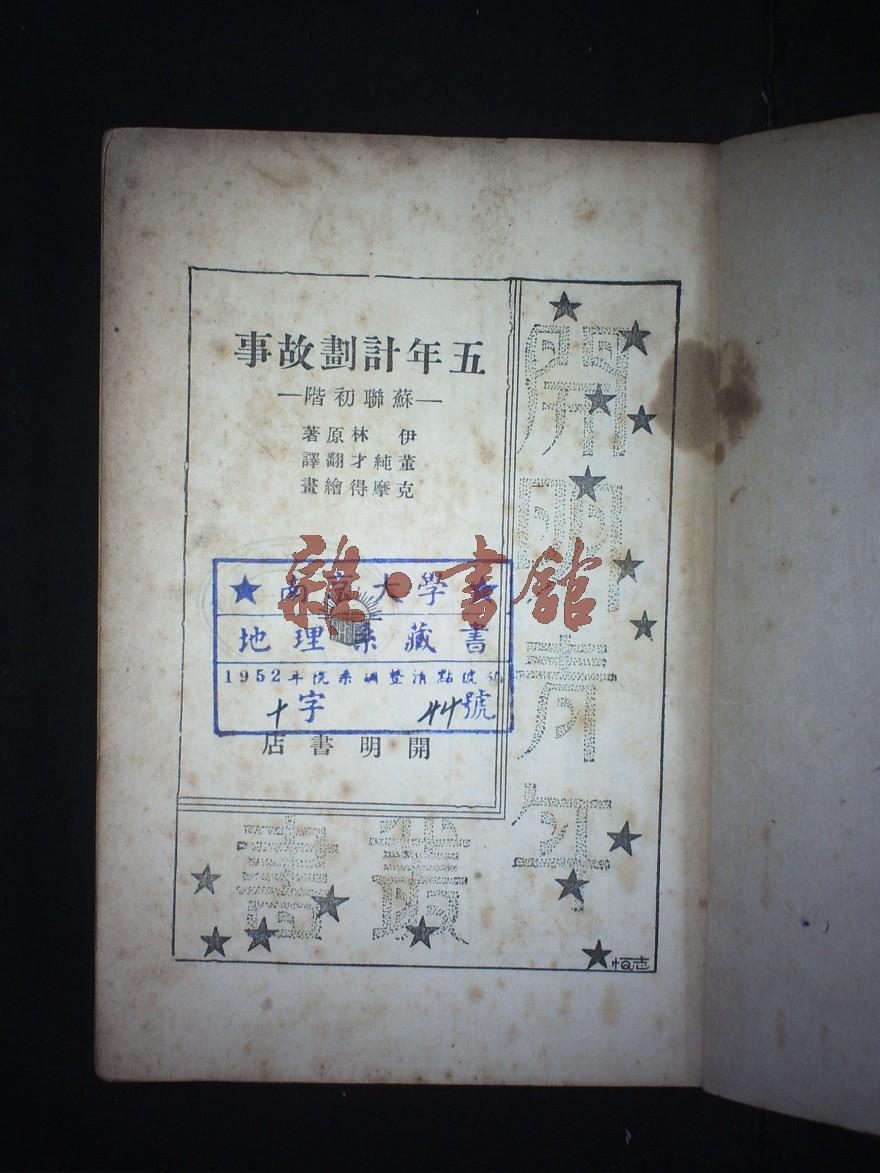 五年計劃故事
—蘇聯初階—
伊林原著
董純才翻譯
克摩得繪畫
雜·書館
★南京大學★
地理系藏書
1952年院系調整清點號碼
十字 44號
開明書店
開明青年
叢書
恒志